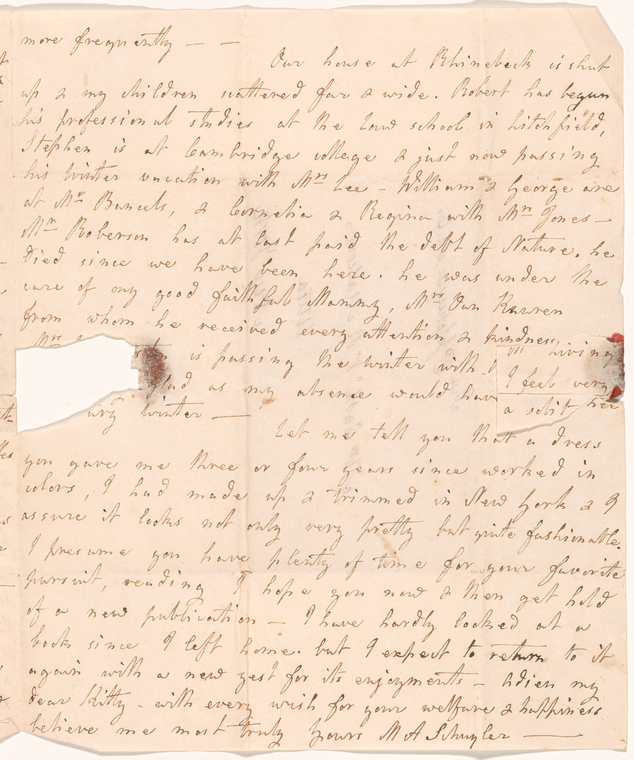 more frequently — —
Our house at Rhinebeck is shut
up & my children scattered far & wide. Robert has begun
his professional studies at the law school in Litchfield,
Stephen is at Cambridge college & just now passing
his Winter vacation with Mrs Lee – William & George are
at Mr Bancels, & Cornelia & Regina with Mrs Jones —
Mr Roberson has at last paid the debt of Nature. he
died since we have been here. he was under the
care of my good faithful Mammy, Mrs Van
from whom he received every attention & kindness
is passing the winter with living
glad as my absence would have I feel very
ary winter — a solit her
Let me tell you that a dress
you gave me three or four years since worked in
colors, I had made up & trimmed in New York & I
assure it looks not only very pretty but quite fashionable.
I presume you have plenty of time for your favorite
pursuit, reading I hope you now & then get hold
of a new publication – I have hardly looked at a
book since I left home. but I expect to return to it
again with a new zest for its enjoyments – Adieu my
dear Kitty – with every wish for your welfare & happiness
believe me most truly yours M A Schuyler —